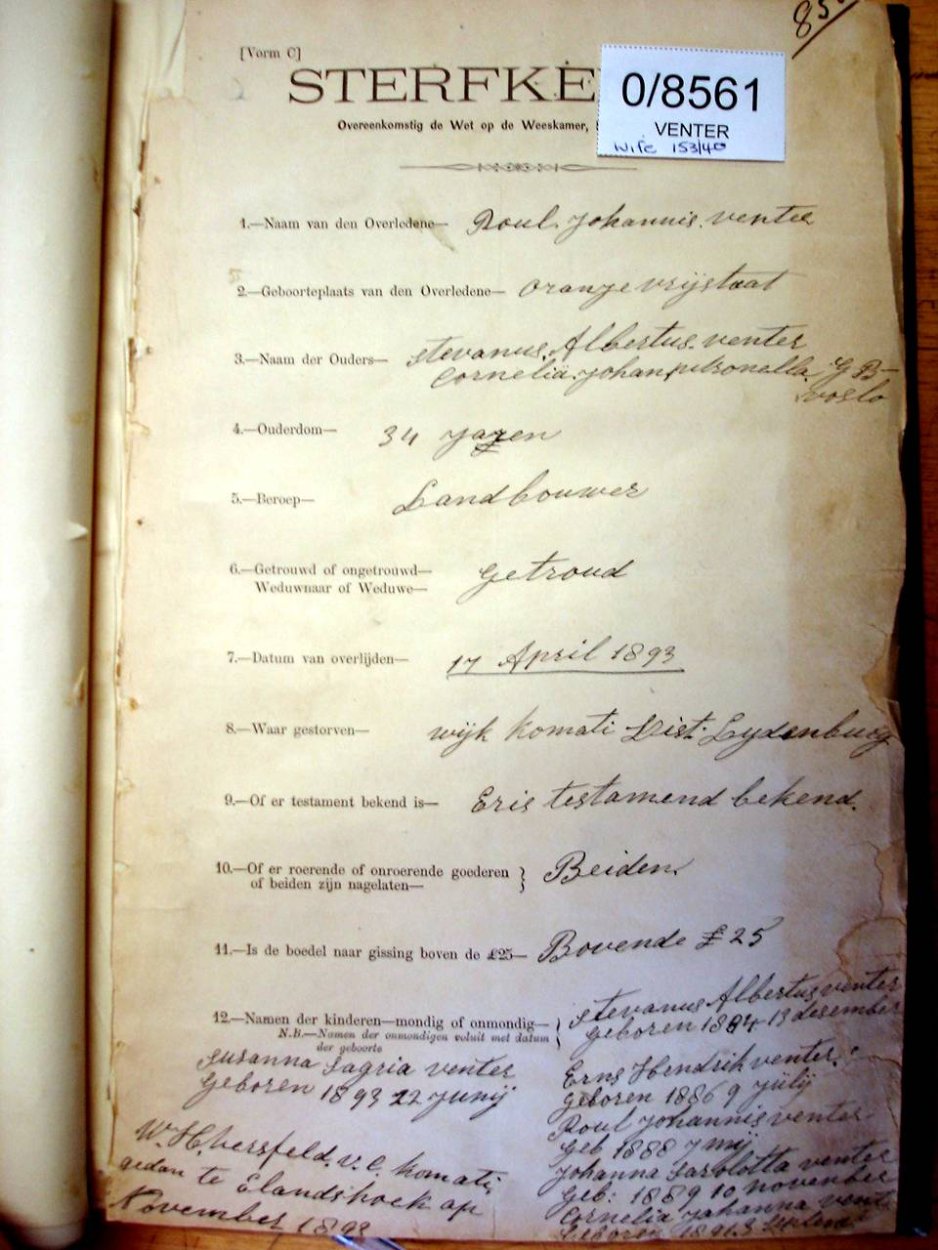 85
[Vorm C]
STERFKE
0/8561
VENTER
wife 153/40
Overeenkomstig de Wet op de Weeskamer,
1.—Naam van den Overledene— Poul Johannis. venter
2.—Geboorteplaats van den Overledene— oranje vrijstaat
3.—Naam der Ouders— stevanus. Albertus. venter
Cornelia. Johan petronella. G B—
voslo
4.—Ouderdom— 34 jaren
5.—Beroep— Landbouwer
6.—Getrouwd of ongetrouwd— Getroud
Weduwnaar of Weduwe—
7.—Datum van overlijden— 17 April 1893
8.—Waar gestorven— wijk Komati Dist. Lydenburg
9.—Of er testament bekend is— Eris testamend bekend.
10.—Of er roerende of onroerende goederen } Beiden.
of beiden zijn nagelaten—
11.—Is de boedel naar gissing boven de £25— Bovende £25
12.—Namen der kinderen—mondig of onmondig— } stevanus Albertus venter
N.B.—Namen der onmondigen voluit met datum geboren 1884 13 desember
der geboorte
Susanna Sagria venter
Geboren 1893 22 Junij
Erns Hendrik venter.
geboren 1886 9 Julij
Poul Johannis venter.
geb 1888 7 mij
Johanna Carolotta venter
geb: 1889 10 november
Cornelia Johanna
Geboren
W. H. hersfeld. v. C. Komati,
gedan te Elandshoek op
November 1893